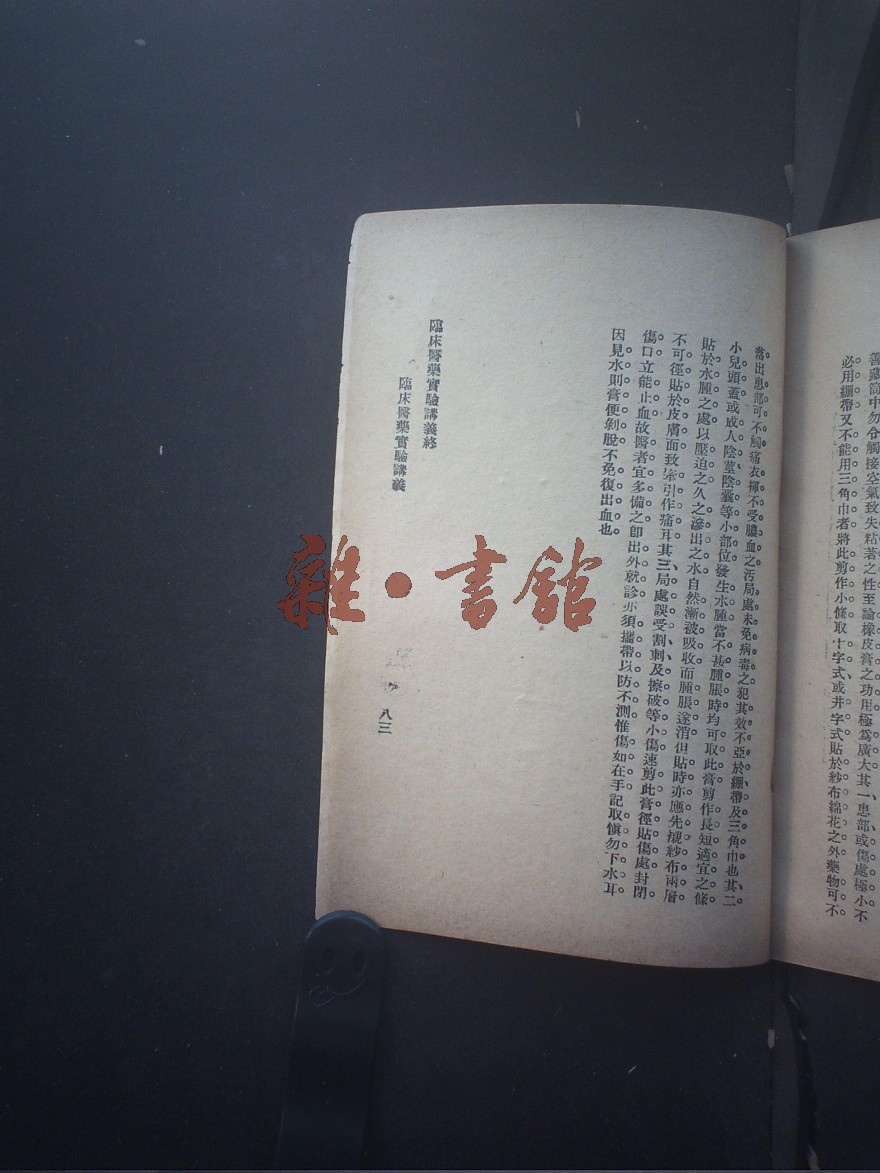 善藏筒中勿令觸接空氣致失粘著之性至論橡皮膏之功用極爲廣大其一患部或傷處極小不
必用繃帶又不能用三角巾者將此剪作小條取十字式或井字式貼於紗布綿花之外藥物可不
落出患部可不觸痛衣揮不受膿血之汚局處未免病毒之犯其效不亞於繃帶及三角巾也其二
小兒頭蓋或成人陰莖陰囊等小部位發生水腫當不甚腫脹時均可取此膏剪作長短適宜之條
貼於水腫之處以壓迫之久之滲出之水自然漸被吸收而腫脹遂消但貼時亦應先襯紗布兩層
不可徑貼於皮膚面致牽引作痛耳其三局處誤受割刺及擦破等小傷速剪此膏徑貼傷處封閉
傷口立能止血故醫者宜多備之卽出外就診亦須攜帶以防不測惟傷如在手記取愼勿下水耳
因見水則膏便剝脫不免復出血也
臨床醫藥實驗講義終
臨床醫藥實驗講義
八三
雜·書館